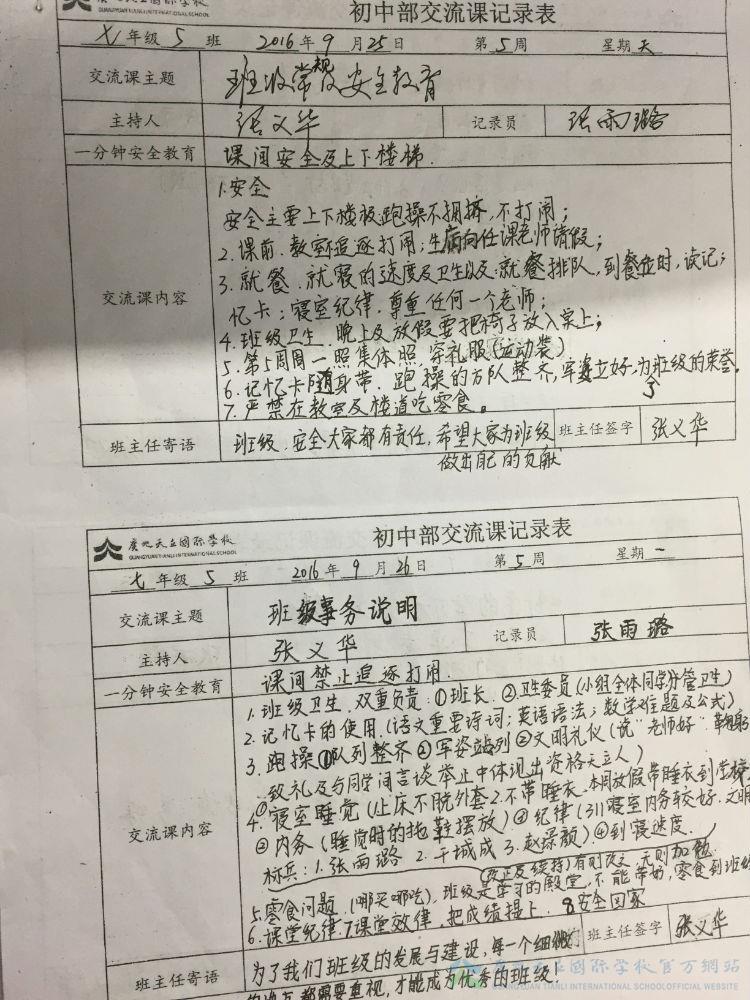 GUANGYUAN TIANLI INTERNATIONAL SCHOOL
初中部交流课记录表
七年级 5 班 2016年 9 月 25日 第 5 周 星期 天
交流课主题 班级常规及安全教育
主持人 张义华 记录员 张雨璐
一分钟安全教育 课间安全及上下楼梯.
1.安全
安全主要上下楼梯,跑操不拥挤,不打闹;
2.课前.教室追逐打闹;生病向任课老师请假;
3.就餐.就寝的速度及卫生以及:就餐排队,到餐位时,读记
忆卡;寝室纪律.尊重任何一个老师;
交流课内容
4.班级卫生.晚上及放假要把椅子放入桌上;
5.第5周周一照集体照.穿礼服(运动装)
6.记忆卡随身带.跑操的方队整齐,军姿立好,为了班级的荣誉.
7.严禁在教室及楼道吃零食。
班主任寄语 班级.安全大家都有责任,希望大家为班级 班主任签字 张义华
做出自己的贡献
广元天立国际学校
GUANGYUAN TIANLI INTERNATIONAL SCHOOL
初中部交流课记录表
七年级 5 班 2016年 9 月 26日 第 5 周 星期 一
交流课主题 班级事务说明
主持人 张义华 记录员 张雨璐
一分钟安全教育 课间禁止追逐打闹.
1.班级卫生.双重负责:①班长.②卫生委员(小组全体同学分管卫生)
2.记忆卡的使用.(语文重要诗词;英语语法;数学难题及公式)
3.跑操①队列整齐②军姿站列③文明礼仪(说"老师好"鞠躬
致礼及与同学间言谈举止中体现出资格天立人)
4.寝室睡觉(止床不脱外套2.不带睡衣.本周放假带睡衣到学校.
交流课内容
②内务(睡觉时的拖鞋摆放)③纪律(311寝室内务较好.文明
标兵:1.张雨璐 2.干城成 3.赵景颜).④到寝速度.
(改正及续持)有则改之.无则加勉
5.零食问题.(哪买哪吃).班级是学习的殿堂.不能带奶,零食到班级
6.课堂纪律.7课堂效律.把成绩提上.8安全回家
班主任寄语 为了我们班级的发展与建设,每一个细微的 班主任签字 张义华
都需要重视,才能成为优秀的班级!
广元天立国际学校官方网站
GUANGYUAN TIANLI INTERNATIONAL SCHOOL OFFICIAL WEBSITE